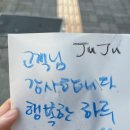 고객님 JuJu
감사합니다
행복한 하루